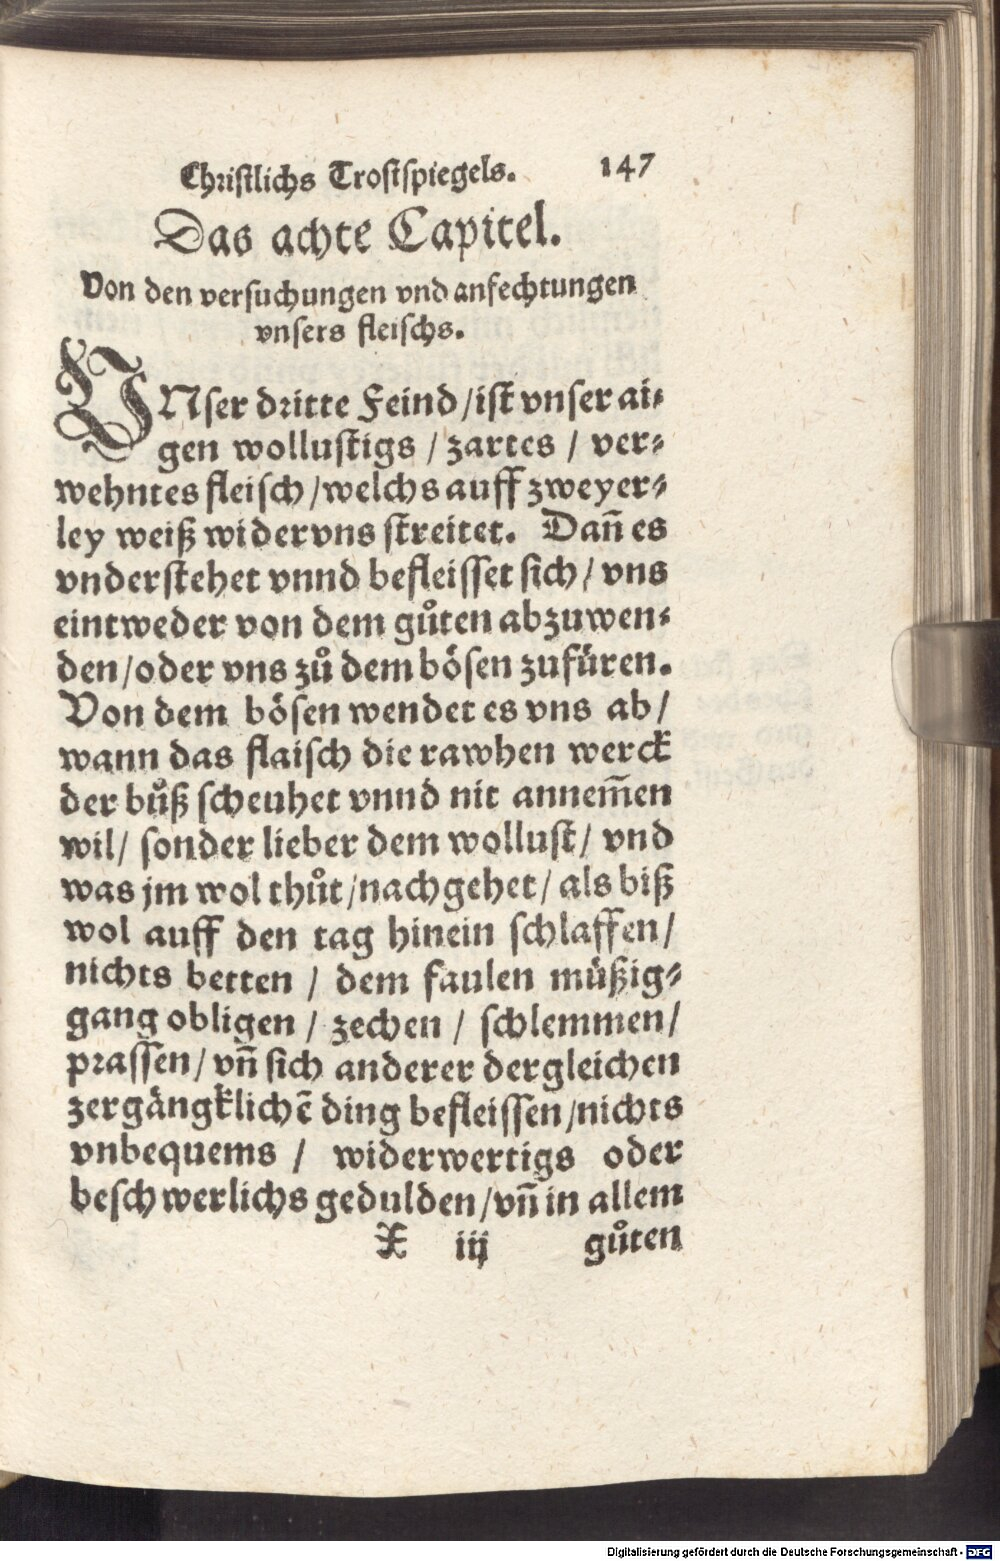 Christlichs Trostspiegels. 147
Das achte Capitel.
Von den versuchungen vnd anfechtungen
vnsers fleischs.
VNser dritte Feind / ist vnser ai⸗
gen wollustigs / zartes / ver⸗
wehntes fleisch / welchs auff zweyer⸗
ley weiß wider vns streitet. Dañ es
vnderstehet vnnd befleisset sich / vns
eintweder von dem gůten abzuwen⸗
den / oder vns zů dem bösen zufüren.
Von dem bösen wendet es vns ab /
wann das flaisch die rawhen werck
der bůß scheuhet vnnd nit annem̃en
wil / sonder lieber dem wollust / vnd
was jm wol thůt / nachgehet / als biß
wol auff den tag hinein schlaffen /
nichts betten / dem faulen müßig⸗
gang obligen / zechen / schlemmen /
prassen / vñ sich anderer dergleichen
zergängklichẽ ding befleissen / nichts
vnbequems / widerwertigs oder
beschwerlichs gedulden / vñ in allem
X iij gůten
Digitalisierung gefördert durch die Deutsche Forschungsgemeinschaft - DFG